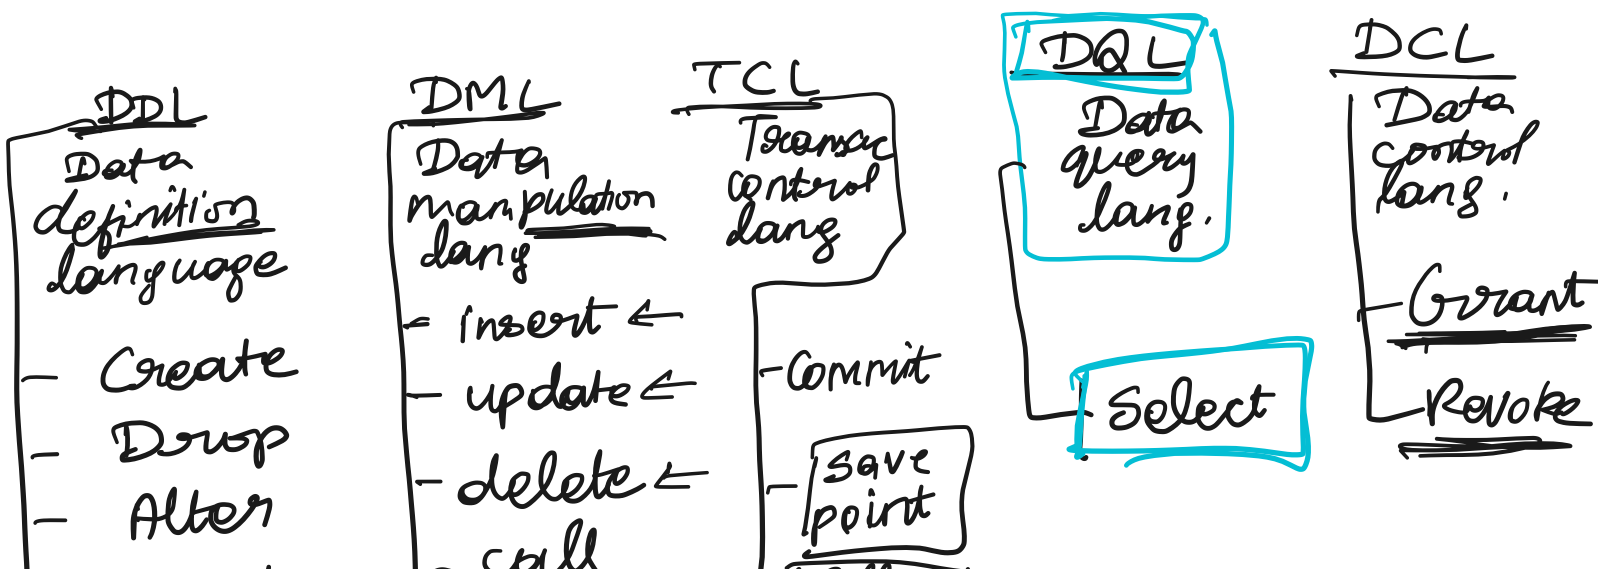 DDL
Data
definition
language
Create
Drop
Alter
DML
Data
manpulation
lang
insert
update
delete
call
TCL
Transac
control
lang
Commit
save
point
DQL
Data
query
lang.
Select
DCL
Data
control
lang.
Grant
Revoke